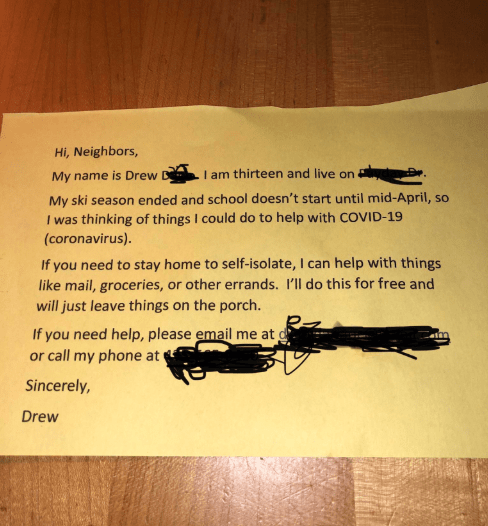 Hi, Neighbors,
My name is Drew I am thirteen and live on
My ski season ended and school doesn't start until mid-April, so
I was thinking of things I could do to help with COVID-19
(coronavirus).
If you need to stay home to self-isolate, I can help with things
like mail, groceries, or other errands.  I'll do this for free and
will just leave things on the porch.
If you need help, please email me at
or call my phone at
Sincerely,
Drew